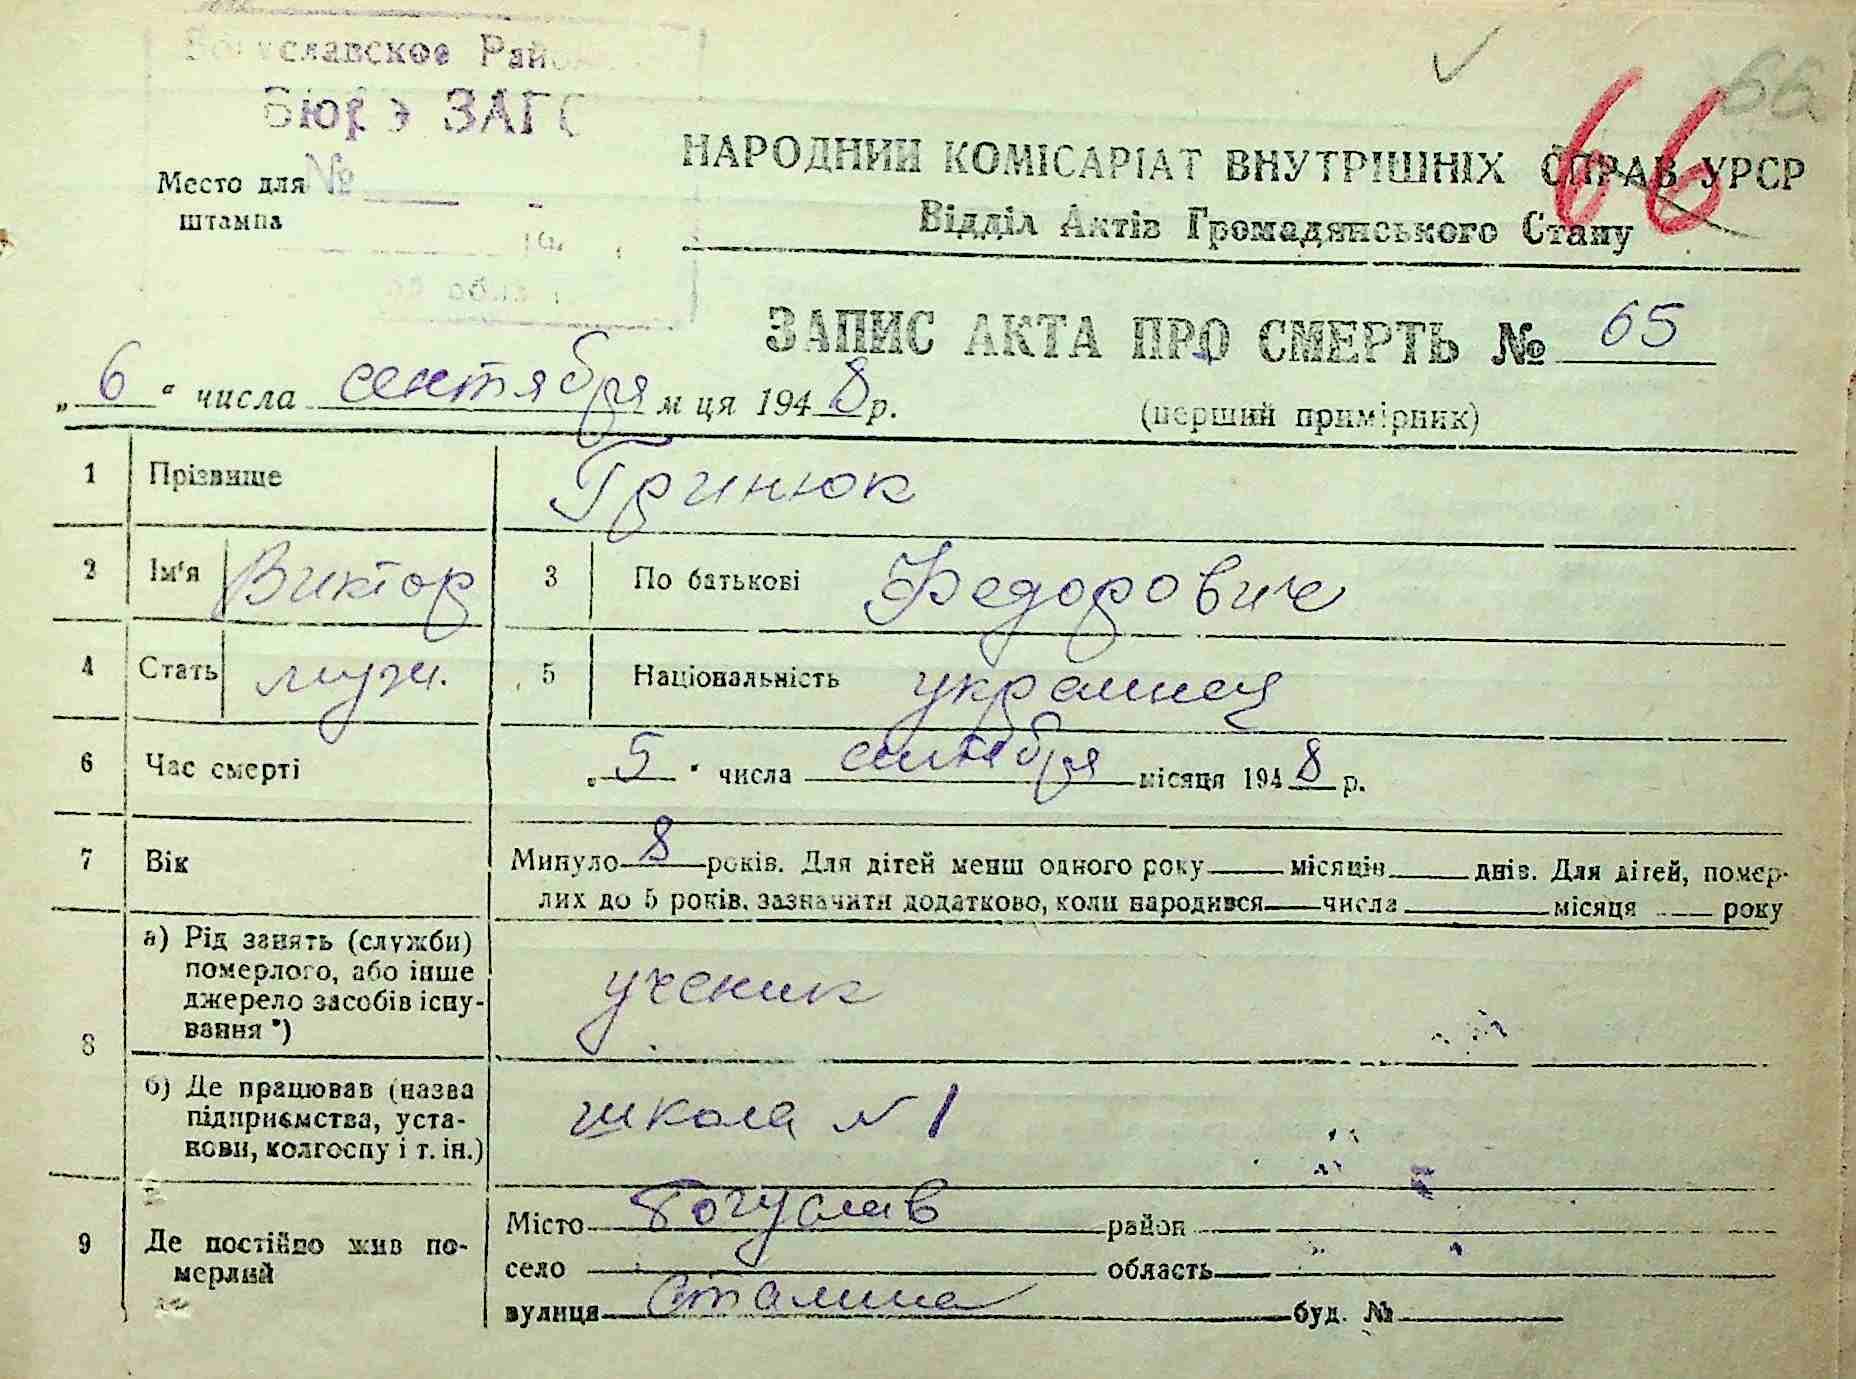 Богуславское Рай
Бюро ЗАГС
66
66
НАРОДНИЙ КОМІСАРІАТ ВНУТРІШНІХ СПРАВ УРСР
Место для №
штампа
Відділ Актів Громадянського Стану
ЗАПИС АКТА ПРО СМЕРТЬ № 65
„6“ числа сентября м ця 1948 р.
(перший примірник)
1 Прізвище Гринюк
2 Ім'я Виктор 3 По батькові Федорович
4 Стать муж. 5 Національність украинец
6 Час смерті „5“ числа сентября місяця 1948 р.
7 Вік Минуло 8 років. Для дітей менш одного року місяців днів. Для дітей, помер-
лих до 5 років, зазначити додатково, коли народився числа місяця року
8 а) Рід занять (служби)
померлого, або інше
джерело засобів існу-
вання *)
ученик
б) Де працював (назва
підприємства, уста-
нови, колгоспу і т. ін.)
школа №1
9 Де постійно жив по-
мерлий
Місто Богуслав район
село область
вулиця Сталина буд. №